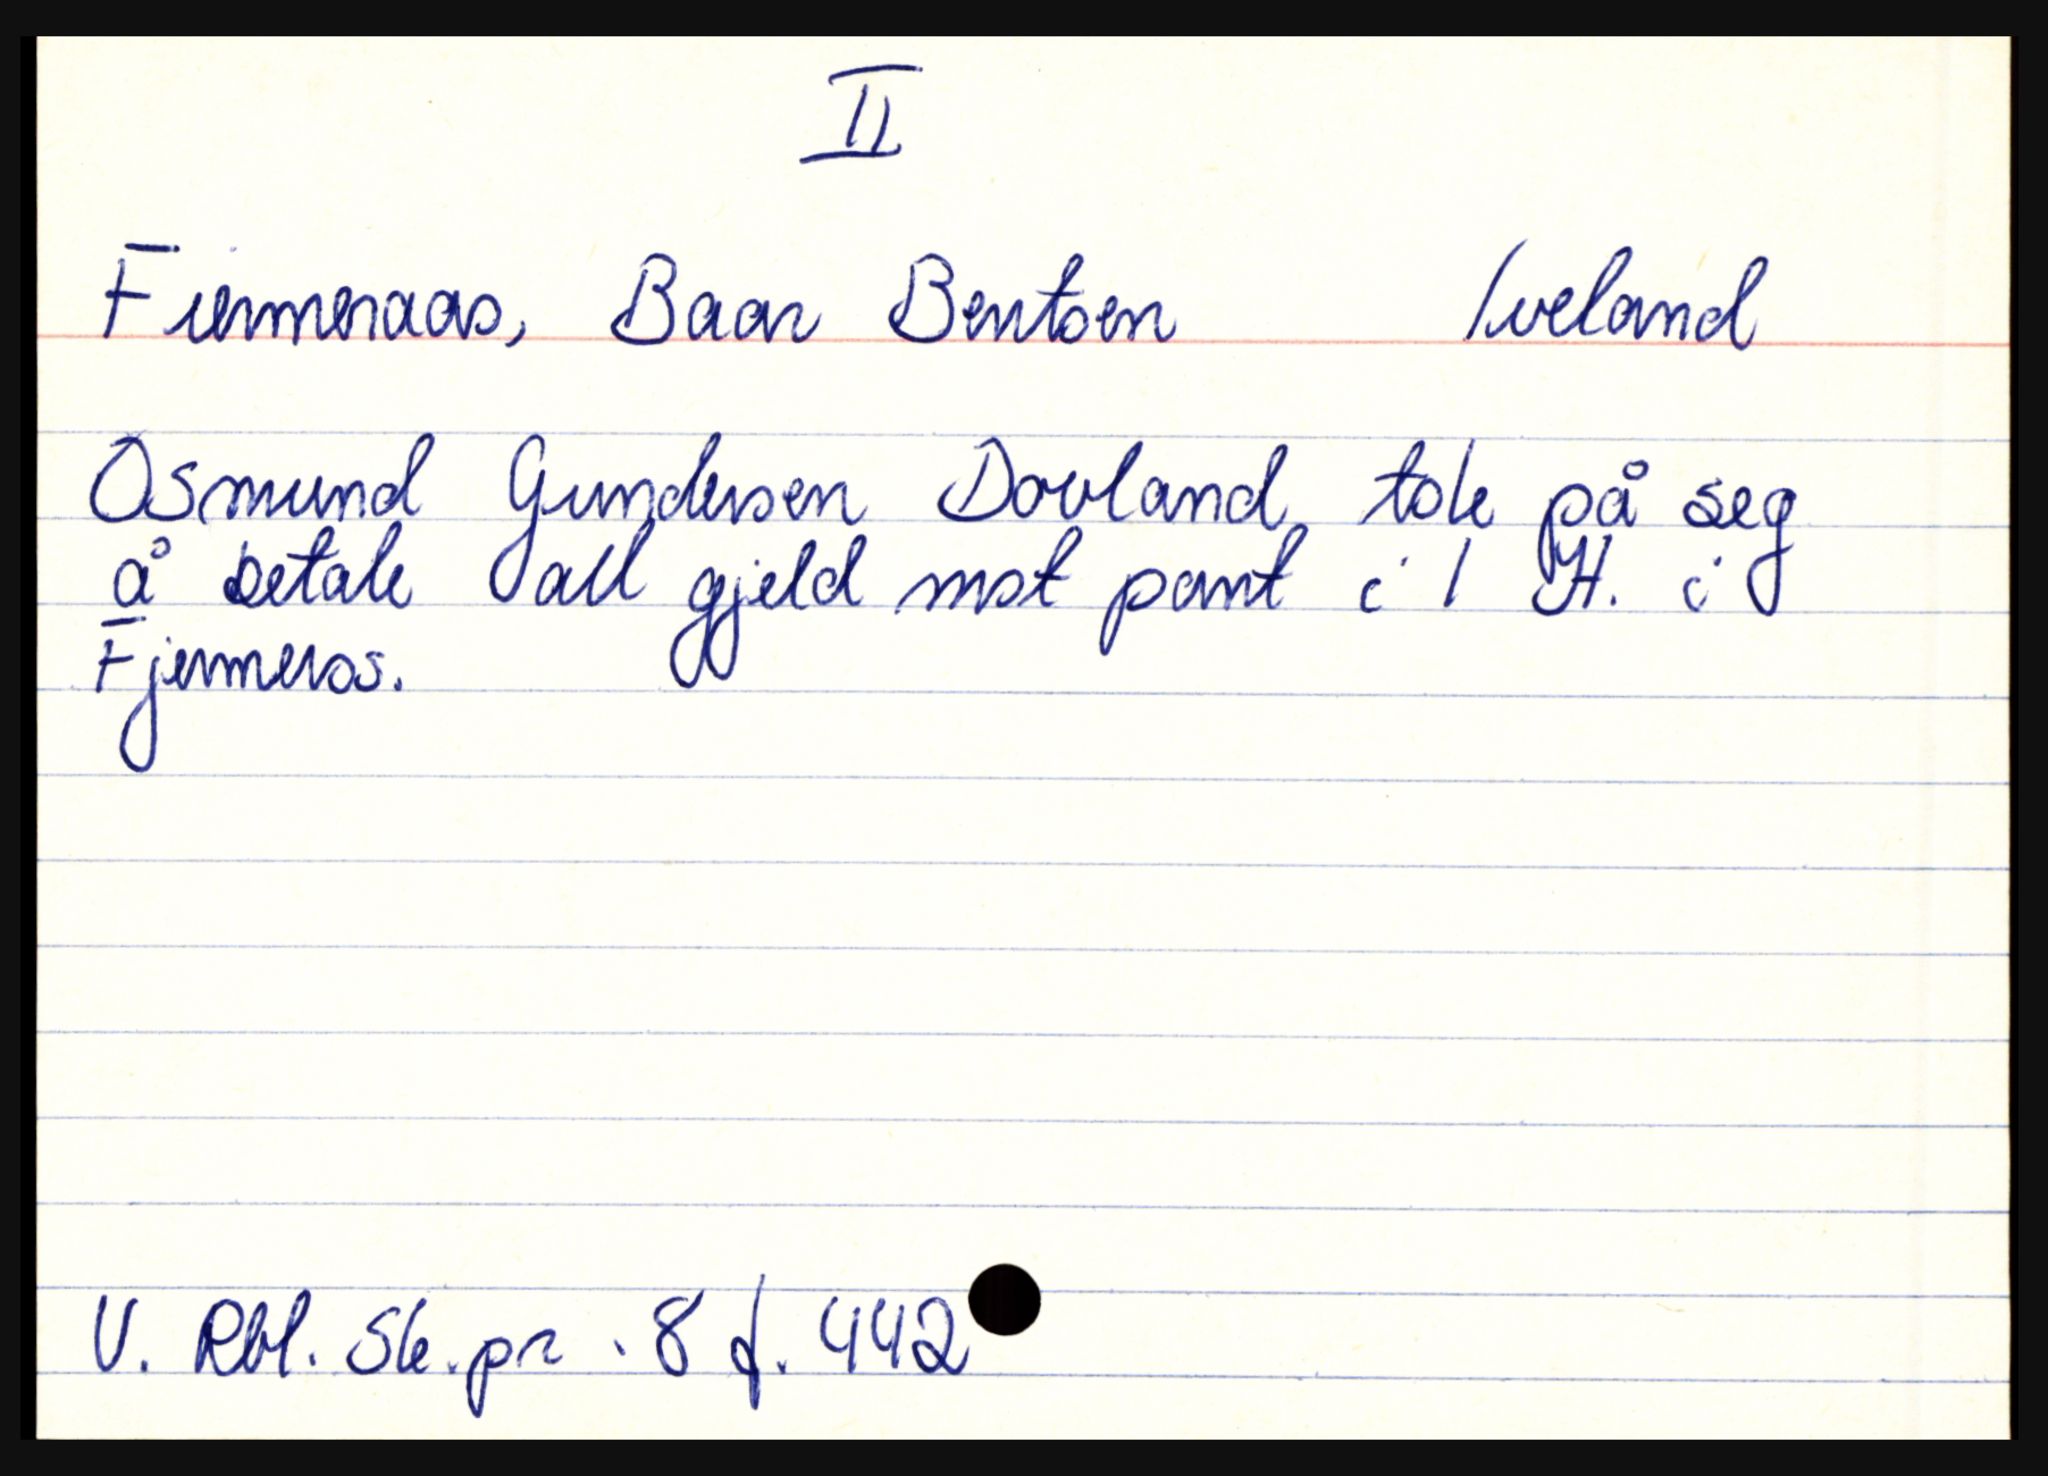 II
Fiermeraas, Baar Bentsen Iveland
Osmund Gundersen Dovland tok på seg
å betale all gjeld mot pant i 1 H. i
Fjermeros.
V. Rbl. Sk.pr. 8 f. 442